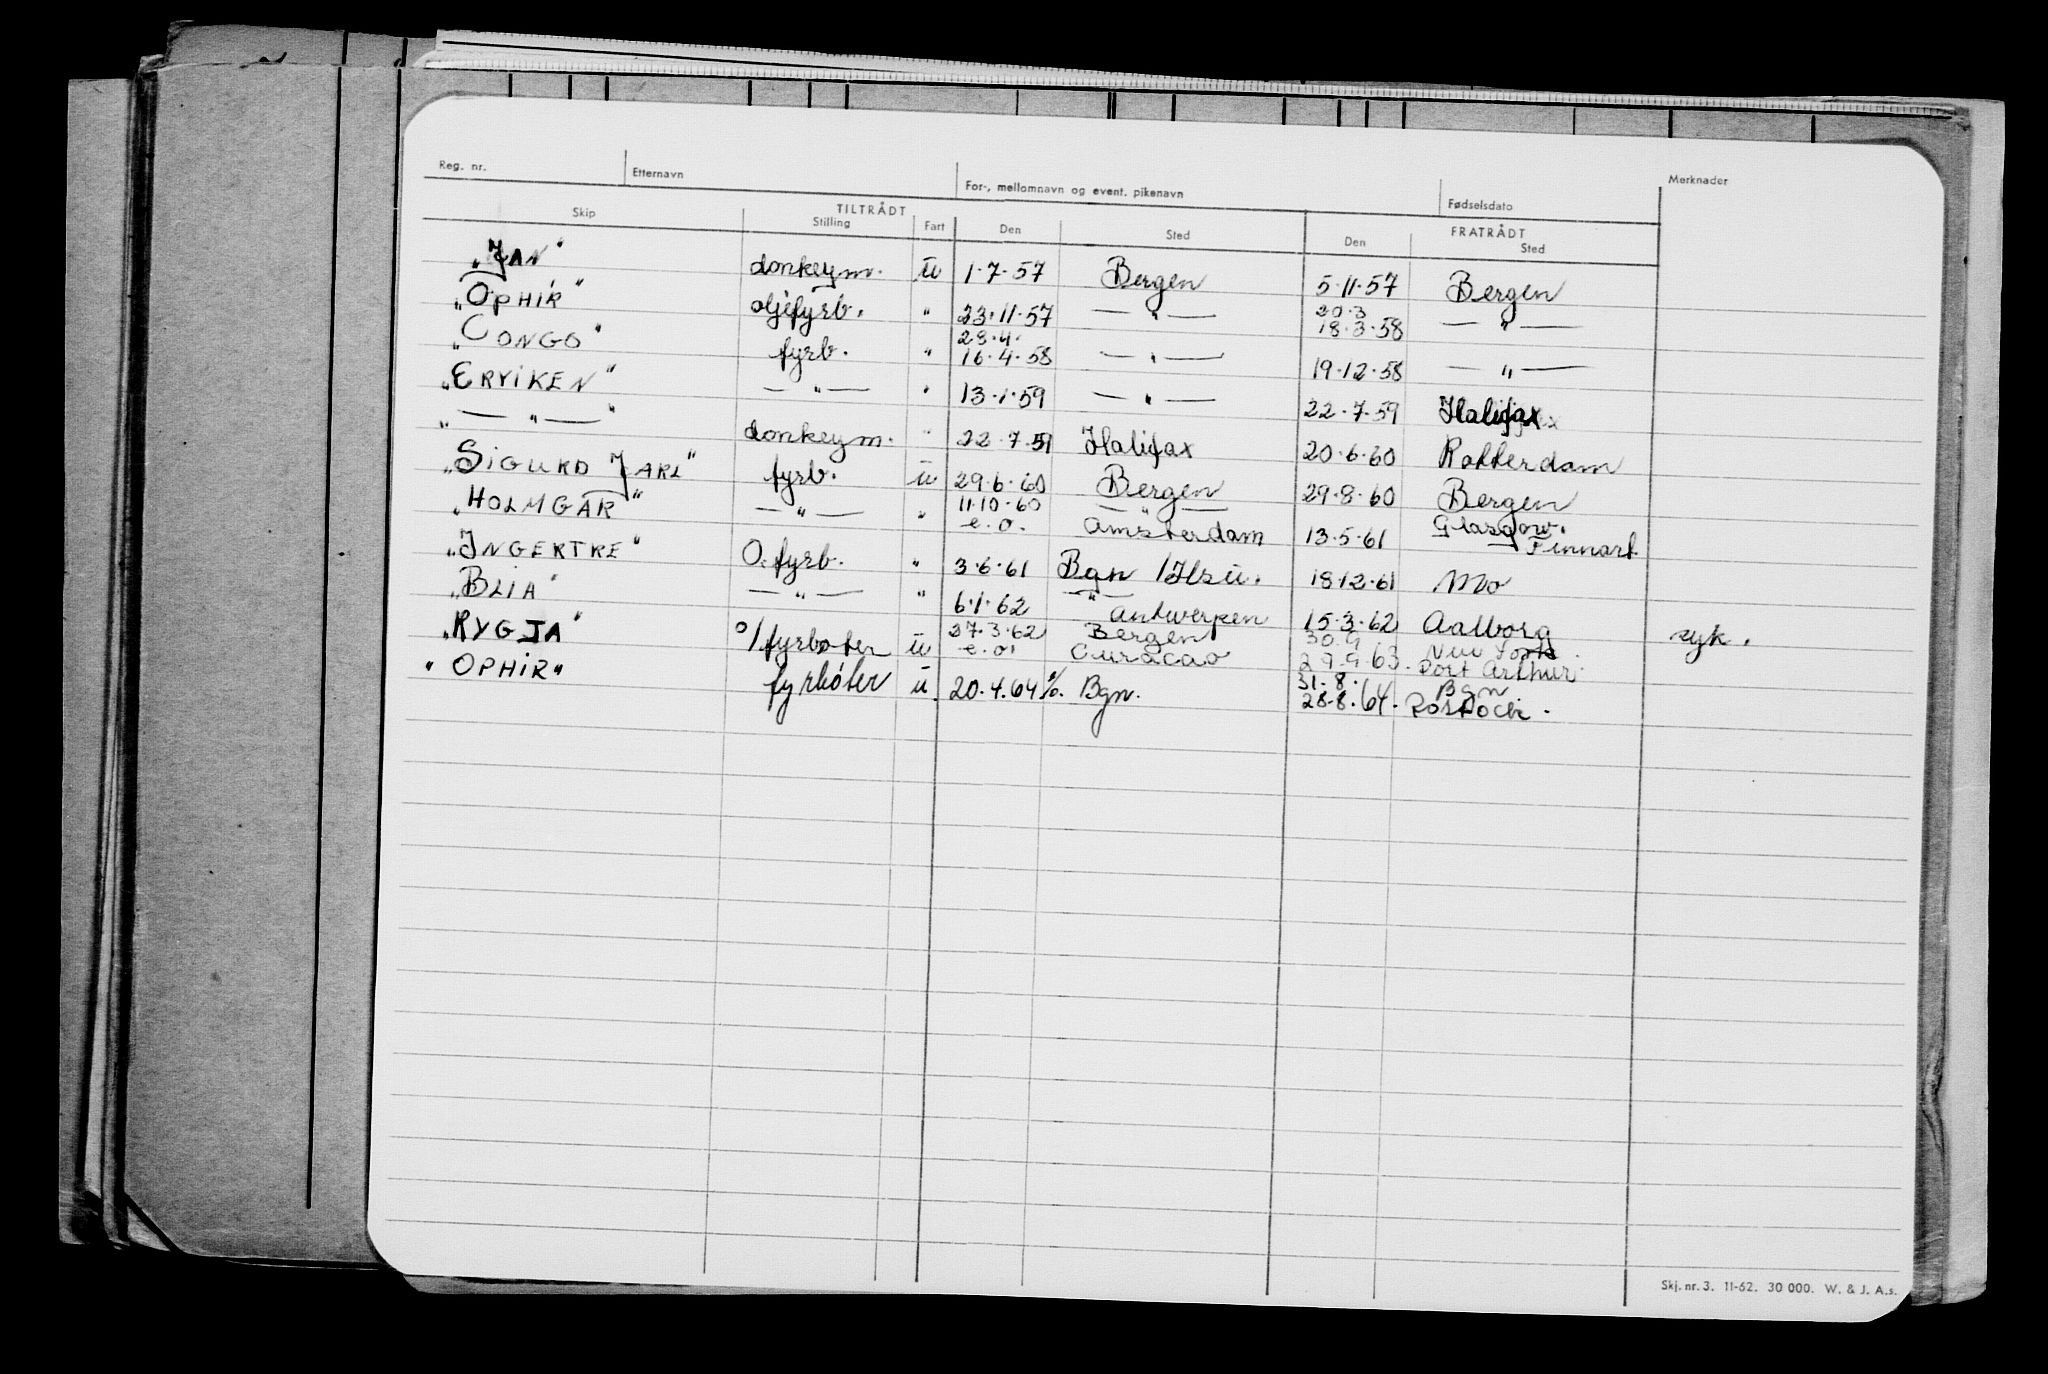 Reg. nr. Etternavn For-, mellomnavn og event. pikenavn Fødselsdato Merknader
TILTRÅDT FRATRÅDT
Skip Stilling Fart Den Sted Den Sted
"JAN" donkeym. ū 1.7.57 Bergen 5.11.57 Bergen
20.3
"OPHIR" oljefyrb. " 23.11.57 — " — 18.3.58 — " —
23.4.
"CONGO" fyrb. " 16.4.58 — " — 19.12.58 — " —
"ERVIKEN" — " — " 13.1.59 — " — 22.7.59 Halifax
" — " — " donkeym. " 22.7.59 Halifax 20.6.60 Rotterdam
"SIGURD JARL" fyrb. ū 29.6.60 Bergen 29.8.60 Bergen
11.10.60 — " — Glasgow.
"HOLMGAR" — " — " e.o. Amsterdam 13.5.61 Finnart
"INGERTRE" O.fyrb. " 3.6.61 Bgn / 18.12.61 Mo
— " —
"BLIA" — " — " 6.1.62 Antwerpen 15.3.62 Aalborg
27.3.62 Bergen 30.9 New York.
"RYGJA" o/fyrbøter ū e.o. Curacao 29.9.63. Port Arthur. syk.
31.8. Bgn
"OPHIR" fyrbøter ū 20.4.64 %. Bgn. 28.8.64. Rostock.
Skj. nr. 3. 11-62. 30 000. W. & J. A.s.